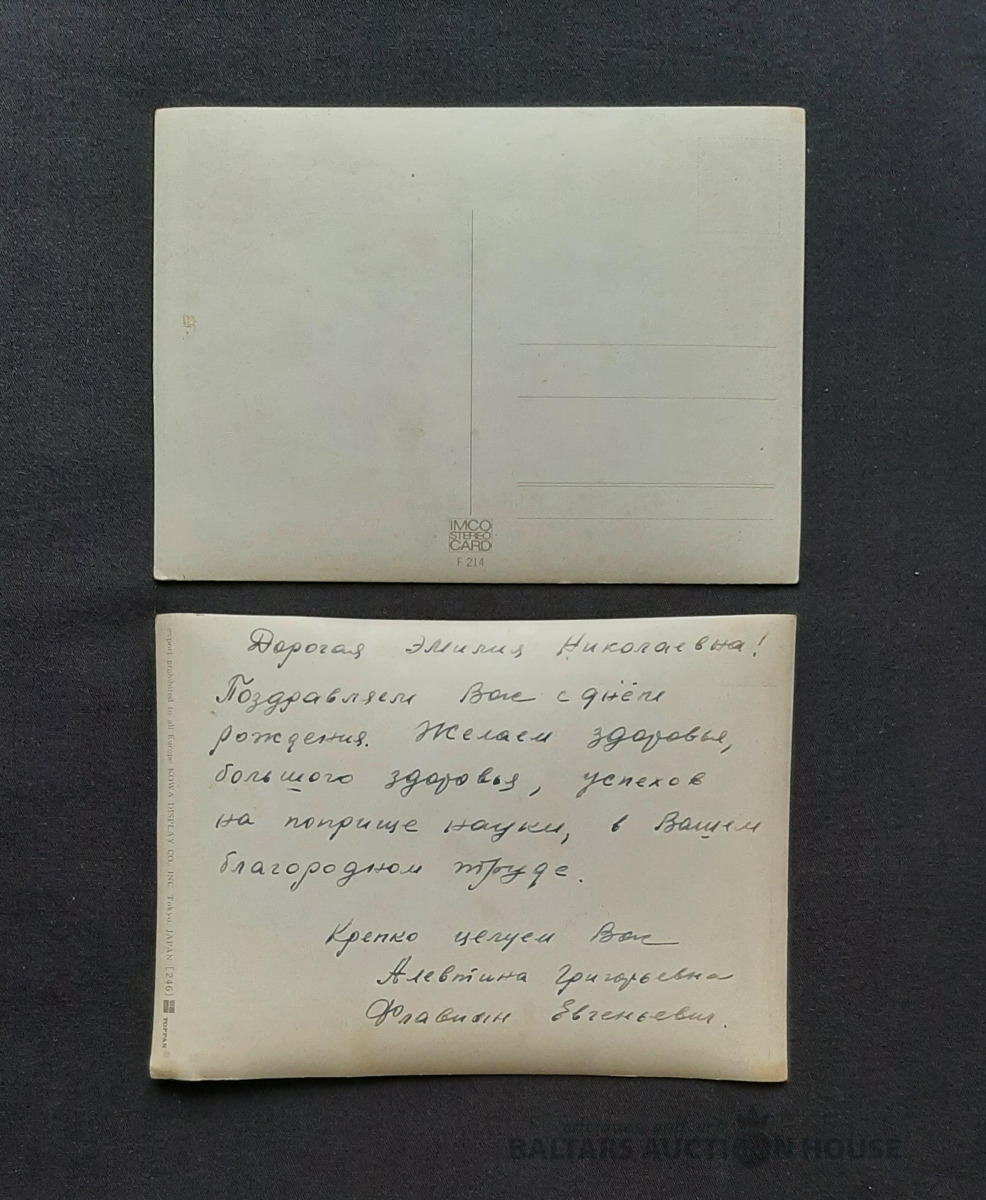 IMCO
STEREO
CARD
F 214
Дорогая Эмилия Николаевна!
Поздравляем Вас с днём
рождения. Желаем здоровья,
большого здоровья, успехов
на поприще науки, в Вашем
благородном труде.
Крепко целуем Вас
Алевтина Григорьевна
Флавиан Евгеньевич.
export prohibited to all Europe KOWA DISPLAY CO., INC. Tokyo, JAPAN [246] TOPPAN
BALTARS AUCTION HOUSE